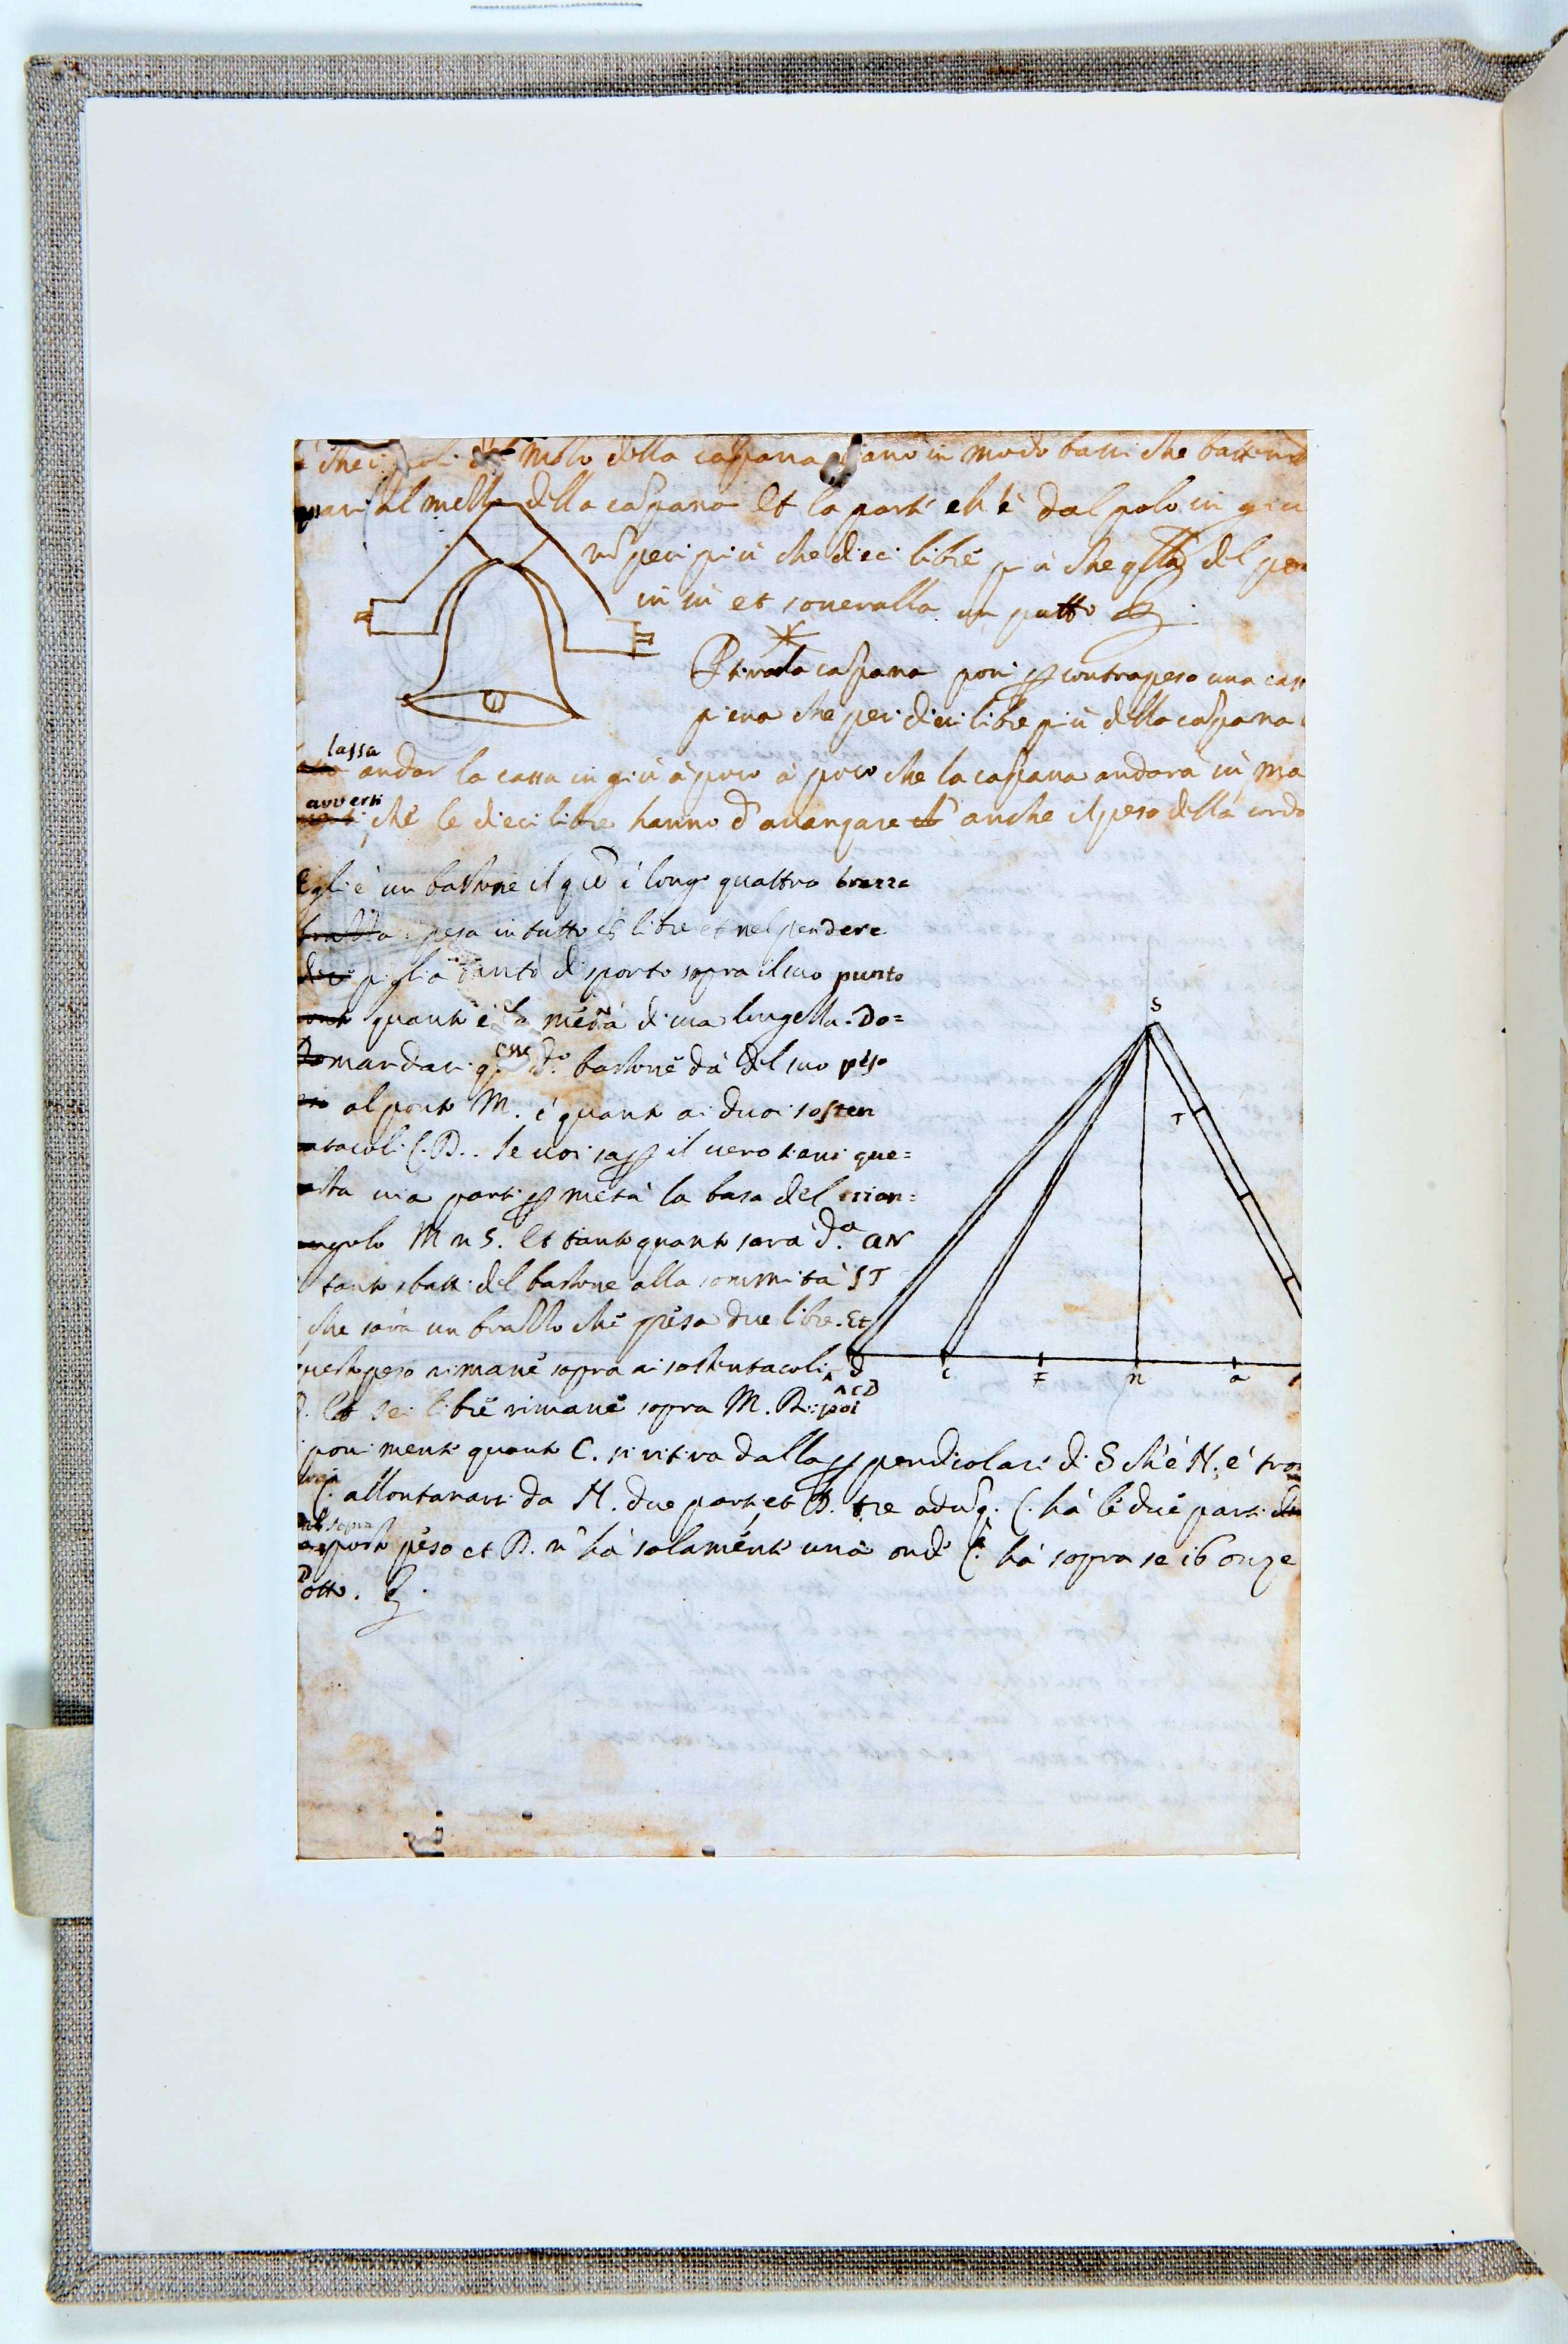 che i poli del molo della capana siano in modo bassi che battend
pari al mello della capana Et la parte ch'è dal polo in giu
nō pesi più che dieci libre più che qlla del po
in sù et soneralla un putto
P tirar la capana poni p contrapeso una cass
piena che pesi dieci libre più della capana
lassa
andar la cassa in giù à poco à poco che la capana andara in sù ma
averti
che le dieci libre hanno d'avanzare anche il peso della corda
Egli è un bastone il q̄le è longo quattro brazza
pesa in tutto 8 libre et nel pendere
piglia tanto di sporto sopra il suo punto
quanto è la metà di sua longezza. Do=
mandasi qsse d.o bastone dà del suo peso
al ponto M. é quanto ai duoi sosten
tacoli C. D. Se voi sap il vero tieni que=
sta via parti p metà la basa del trian=
ngolo M n S. Et tanto quanto sarà d.a an
tanto sbatti del bastone alla sommità ST
che sarà un brazzo che pesa due libre. Et
questo peso rimane sopra ai sostentacoli
CD
Et sei libre rimane sopra M. R: poi
poni mente quanto C. si ritira dalla ppendicolare di S ch'è N. è tro
verai
C. allontanarsi da N. due parti, et D. tre aduq. C. hà le due parti
del sopra
posto peso et D. n' hà solamente una onde C. hà sopra se 16 onze
D otto.
S
T
d
c
F
n
a